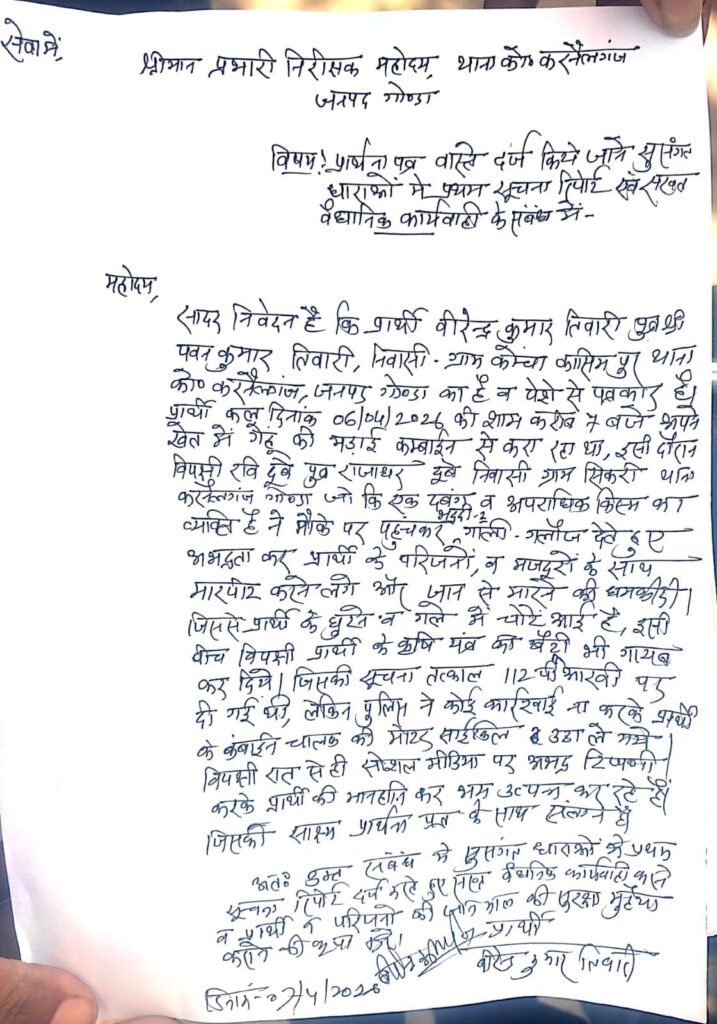 सेवा में,
श्रीमान प्रभारी निरीक्षक महोदय, थाना को० करनैलगंज
जनपद गोण्डा
विषय: प्रार्थना पत्र वास्ते दर्ज किये जाने सुसंगत
धाराओं मे प्रथम सूचना रिपोर्ट एवं सख्त
वैधानिक कार्यवाही के संबंध में-
महोदय,
सादर निवेदन है कि प्रार्थी वीरेन्द्र कुमार तिवारी पुत्र श्री
पवन कुमार तिवारी, निवासी- ग्राम कोंचा कासिम पुर थाना
को० करनैलगंज, जनपद गोण्डा का है व पेशे से पत्रकार है।
प्रार्थी कल दिनांक 06/04/2026 की शाम करीब 7 बजे अपने
खेत में गेहू की मड़ाई कम्बाईन से करा रहा था, इसी दौरान
विपक्षी रवि दूबे पुत्र राजाधर दूबे निवासी ग्राम सिकरी थाना
करनैलगंज गोण्डा जो कि एक दबंग व अपराधिक किस्म का
व्यक्ति है ने मौके पर पहुंचकर भद्दी-२ गाली-गलौज देते हुए
अभद्रता कर प्रार्थी के परिजनों, व मजदूरों के साथ
मारपीट करने लगे और जान से मारने की धमकी दी।
जिससे प्रार्थी के घुटने व गले में चोटें आई है, इसी
बीच विपक्षी प्रार्थी के कृषि यंत्र की बैट्री भी गायब
कर दिये। जिसकी सूचना तत्काल 112 पीआरवी पर
दी गई थी, लेकिन पुलिस ने कोई कार्रवाई ना करके प्रार्थी
के कंबाईन चालक की मोटर साईकिल उठा ले गये।
विपक्षी रात से ही सोशल मीडिया पर अभद्र टिप्पणी
करके प्रार्थी की मानहानि कर भ्रम उत्पन्न कर रहे हैं।
जिसकी साक्ष्य प्रार्थना पत्र के साथ संलग्न है।
अतः उक्त संबंध मे सुसंगत धाराओं मे प्रथम
सूचना रिपोर्ट दर्ज करते हुए सख्त वैधानिक कार्यवाही करने
व प्रार्थी व परिजनों की जान माल की सुरक्षा मुहैया
कराने की कृपा करें।
प्रार्थी
वीरेन्द्र कुमार तिवारी
दिनांक- 07/4/2026